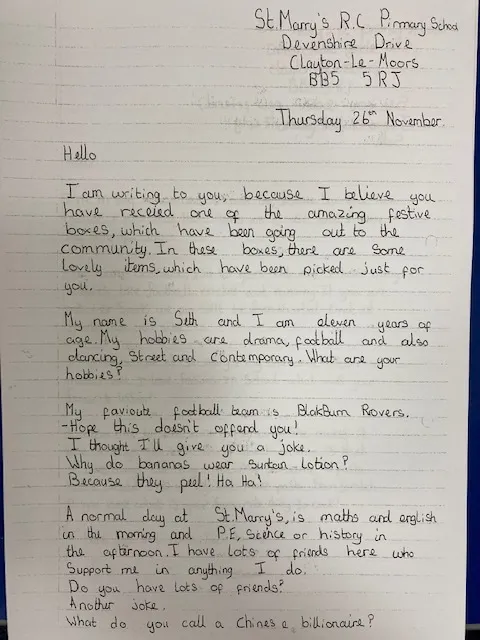 St.Marry's R.C Pirmary School
Devenshire Drive
Clayton-Le-Moors
BB5 5RJ
Thursday 26th November
Hello
I am writing to you, because I believe you
have receied one of the amazing festive
boxes, which have been going out to the
community. In these boxes, there are some
lovely items, which have been picked just for
you.
My name is Seth and I am eleven years of
age. My hobbies are drama, football and also
dancing, Street and Contemporary. What are your
hobbies?
My favioute football team is BlakBurn Rovers.
-Hope this doesn't offend you!
I thought I'll give you a joke.
Why do bananas wear suntan lotion?
Because they peel! Ha Ha!
A normal day at St.Marry's, is maths and english
in the morning and P.E, Science or history in
the afternoon. I have lots of friends here who
Support me in anything I do.
Do you have lots of friends?
Another joke.
What do you call a Chines e billionaire?